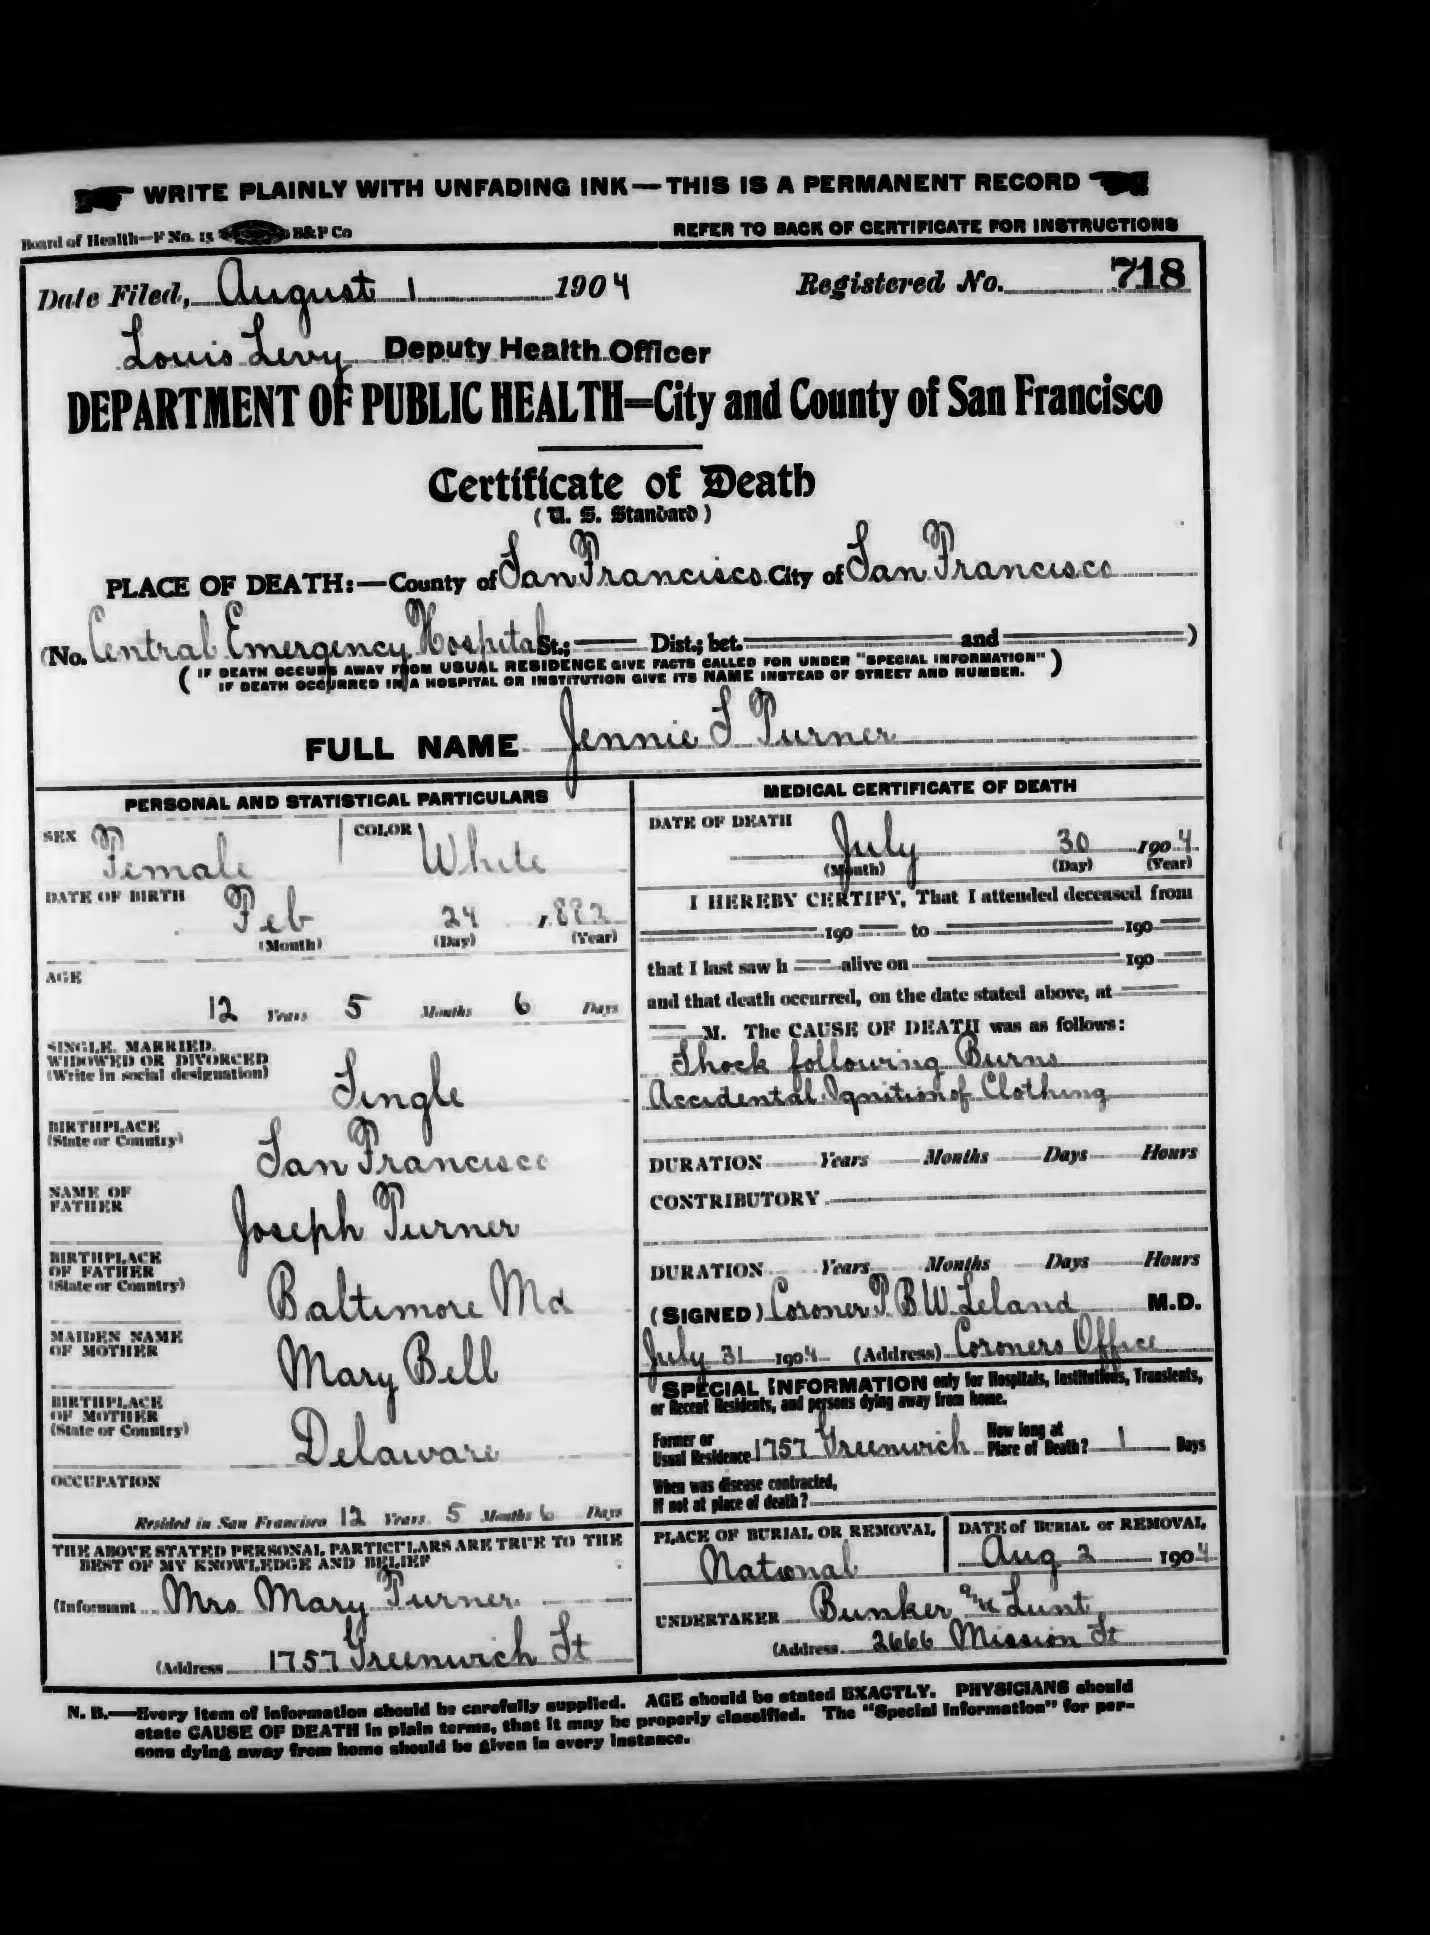 WRITE PLAINLY WITH UNFADING INK—THIS IS A PERMANENT RECORD
Board of Health—F No. 15 B&P Co REFER TO BACK OF CERTIFICATE FOR INSTRUCTIONS
Date Filed, August 1 1904 Registered No. 718
Louis Levy Deputy Health Officer
DEPARTMENT OF PUBLIC HEALTH=City and County of San Francisco
Certificate of Death
(U. S. Standard)
PLACE OF DEATH:—County of San Francisco City of San Francisco
(No. Central Emergency Hospital St.; Dist.; bet. and )
(IF DEATH OCCURS AWAY FROM USUAL RESIDENCE GIVE FACTS CALLED FOR UNDER "SPECIAL INFORMATION"
IF DEATH OCCURRED IN A HOSPITAL OR INSTITUTION GIVE ITS NAME INSTEAD OF STREET AND NUMBER.)
FULL NAME Jennie S Turner
PERSONAL AND STATISTICAL PARTICULARS
SEX Female COLOR White
DATE OF BIRTH Feb 24 , 892
(Month) (Day) (Year)
AGE
12 Years 5 Months 6 Days
SINGLE, MARRIED,
WIDOWED OR DIVORCED
(Write in social designation) Single
BIRTHPLACE
(State or Country) San Francisco
NAME OF
FATHER Joseph Turner
BIRTHPLACE
OF FATHER
(State or Country) Baltimore Md
MAIDEN NAME
OF MOTHER Mary Bell
BIRTHPLACE
OF MOTHER
(State or Country) Delaware
OCCUPATION
Resided in San Francisco 12 Years 5 Months 6 Days
THE ABOVE STATED PERSONAL PARTICULARS ARE TRUE TO THE
BEST OF MY KNOWLEDGE AND BELIEF
(Informant Mrs Mary Turner
(Address 1757 Greenwich St
MEDICAL CERTIFICATE OF DEATH
DATE OF DEATH
July 30 1904
(Month) (Day) (Year)
I HEREBY CERTIFY, That I attended deceased from
190 to 190
that I last saw h alive on 190
and that death occurred, on the date stated above, at
M. The CAUSE OF DEATH was as follows:
Shock following Burns
Accidental Ignition of Clothing
DURATION Years Months Days Hours
CONTRIBUTORY
DURATION Years Months Days Hours
(SIGNED) Coroner T B W Leland M.D.
July 31 1904 (Address) Coroners Office
SPECIAL INFORMATION only for Hospitals, Institutions, Transients,
or Recent Residents, and persons dying away from home.
Former or
Usual Residence 1757 Greenwich How long at
Place of Death? 1 Days
When was disease contracted,
If not at place of death?
PLACE OF BURIAL OR REMOVAL
National
DATE of BURIAL or REMOVAL
Aug 2 1904
UNDERTAKER Bunker & Lunt
(Address 2666 Mission St
N. B.—Every item of information should be carefully supplied. AGE should be stated EXACTLY. PHYSICIANS should
state CAUSE OF DEATH in plain terms, that it may be properly classified. The "Special Information" for per-
sons dying away from home should be given in every instance.